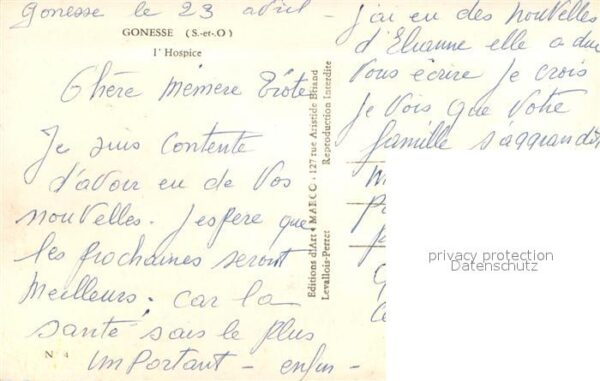 Gonesse le 23 avril -
GONESSE (S.-et-O.)
l'Hospice
Chère Mémère
Je suis contente
d'avoir eu de vos
nouvelles. J'espère que
les prochaines seront
meilleurs. car la
santé sais le plus
important - enfin -
N 4
Editions d'Art MARCO - 127 rue Aristide Briand
Levallois-Perret
Reproduction Interdite
j'ai eu des nouvelles
d'Elianne elle a du
vous écrire je crois
je vois que votre
famille s'aggrandit
privacy protection
Datenschutz